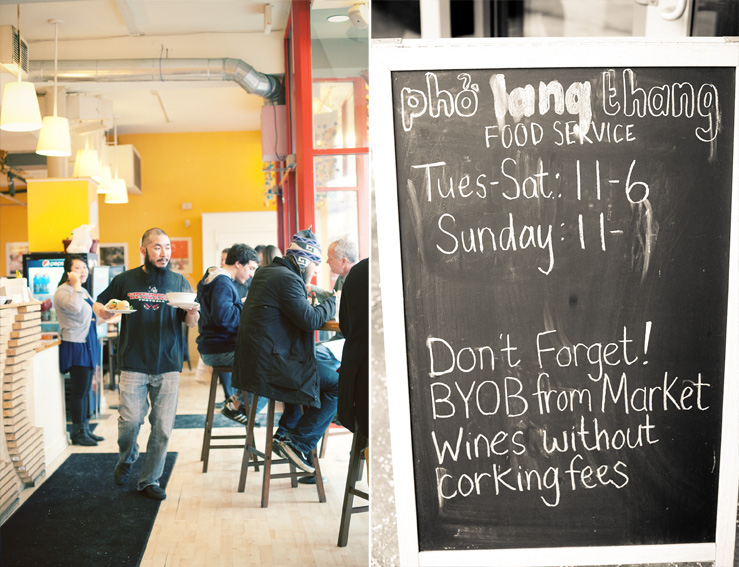 phở lang thang
FOOD SERVICE
Tues-Sat: 11-6
Sunday: 11-
Don't Forget!
BYOB from Market
Wines without
corking fees